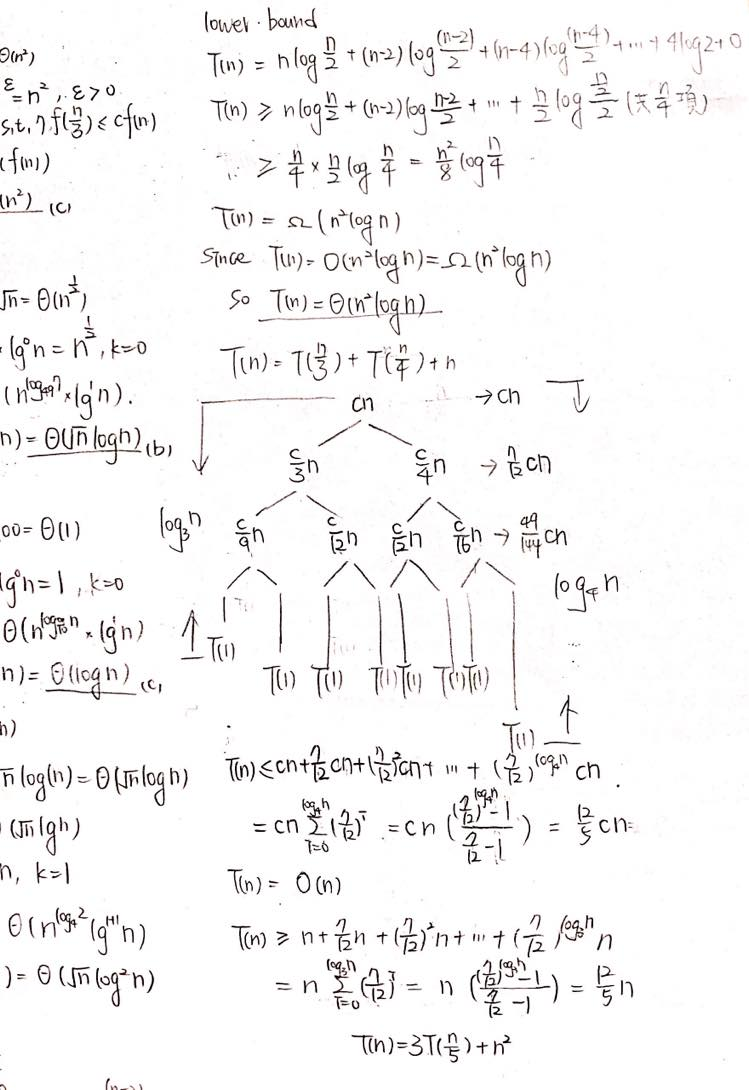 Θ(n²)
ε = n², ε > 0
s.t. 7f(n/3) ≤ cf(n)
(f(n))
(n²) (c)
√n = Θ(n^(1/2))
lg⁰n = n^(1/2), k=0
(n^(log₄₉7) × lg¹n).
n) = Θ(√n logn) (b)
00 = Θ(1)
lg⁰n = 1, k=0
× lg¹n)
n) = Θ(logn) (c)
n)
√n log(n) = Θ(√n logn)
(√n lgn)
n, k=1
Θ(n^(log₄2) lg^(1+1) n)
) = Θ(√n log²n)
lower-bound
T(n) = n log n/2 + (n-2) log (n-2)/2 + (n-4) log (n-4)/2 + ... + 4log2+0
T(n) ≥ n log n/2 + (n-2) log (n-2)/2 + ... + n/2 log (n/2)/2 (共 n/4 項)
≥ n/4 × n/2 log n/4 = n²/8 log n/4
T(n) = Ω(n²logn)
Since T(n) = O(n²logn) = Ω(n²logn)
So T(n) = Θ(n²logn)
T(n) = T(n/3) + T(n/4) + n
cn → cn
c/3 n c/4 n → 7/12 cn
log₃n c/9 n c/12 n c/12 n c/16 n → 49/144 cn
log₄n
T(1)
T(1) T(1) T(1) T(1) T(1) T(1)
T(1)
T(n) ≤ cn + 7/12 cn + (7/12)² cn + ... + (7/12)^(log₄n) cn
= cn Σ_(i=0)^(log₄n) (7/12)^i = cn (((7/12)^(log₄n) - 1)/(7/12 - 1)) = 12/5 cn
T(n) = O(n)
T(n) ≥ n + 7/12 n + (7/12)² n + ... + (7/12)^(log₃n) n
= n Σ_(i=0)^(log₃n) (7/12)^i = n (((7/12)^(log₃n) - 1)/(7/12 - 1)) = 12/5 n
T(n) = 3T(n/5) + n²